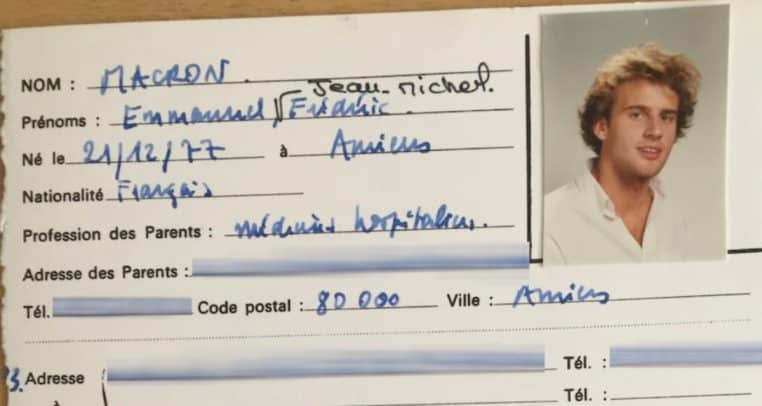 NOM : MACRON.
Jean-Michel.
Prénoms : Emmanuel, Frédéric.
Né le 21/12/77 à Amiens
Nationalité Français
Profession des Parents : médecins hospitaliers.
Adresse des Parents :
Tél. Code postal : 80 000 Ville : Amiens
3. Adresse Tél. :
à Tél. :